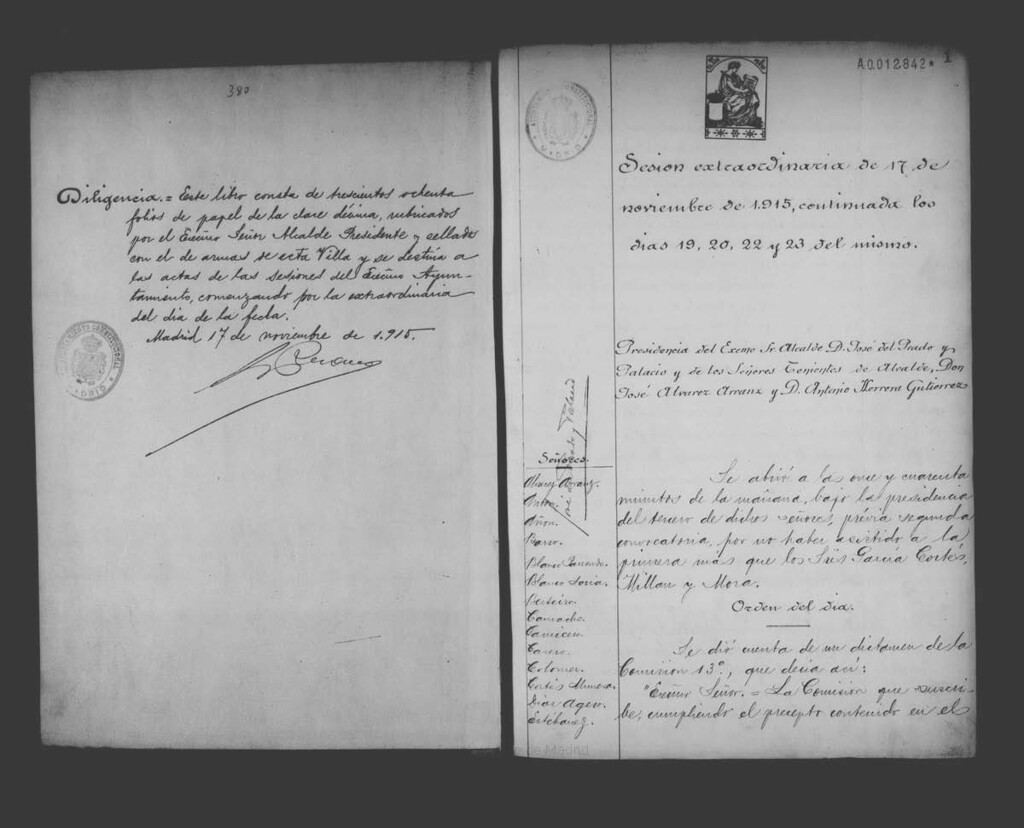 380
Diligencia. = Este libro consta de trescientos ochenta
folios de papel de la clase décima, rubricados
por el Excmo Señor Alcalde Presidente y sellado
con el de armas de esta Villa y se destina a
las actas de las sesiones del Excmo Ayun-
tamiento, comenzando por la extraordinaria
del dia de la fecha.
Madrid 17 de noviembre de 1.915.
AYUNTAMIENTO CONSTITUCIONAL
MADRID
AYUNTAMIENTO CONSTITUCIONAL
MADRID
A.0.012.842*
1
Sesion extraordinaria de 17 de
noviembre de 1.915, continuada los
dias 19, 20, 22 y 23 del mismo.
Presidencia del Excmo Sr. Alcalde D. José del Prado y
Palacio y de los Señores Tenientes de Alcalde, Don
José Alvarez Arranz y D. Antonio Herrera Gutiérrez
José del Prado y Palacio
Señores.
Alvarez Arranz.
Antón.
Añon.
Barro.
Blanco Parrondo.
Blanco Soria.
Camacho.
Carnicero.
Casero.
Colomer.
Cortés Munera.
Diaz Agero.
Estebanez.
Se abrió a las once y cuarenta
minutos de la mañana, bajo la presidencia
del tercero de dichos señores, prévia segunda
convocatoria, por no haber asistido a la
primera más que los Srés García Cortés,
Millan y Mora.
Orden del dia.
Se dió cuenta de un dictamen de la
Comisión 13ª, que decia asi:
"Excmo Señor. = La Comisión que suscri-
be, cumpliendo el precepto contenido en el
de Madrid